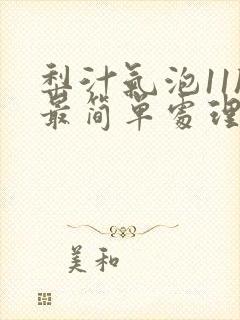 梨汁氣泡11P
最简单處理
美和